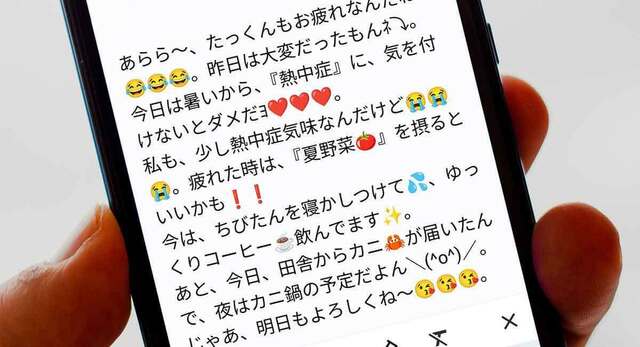 あらら〜、たっくんもお疲れなんだね
😂😂😂。昨日は大変だったもんﾈ⤵。
今日は暑いから、『熱中症』に、気を付
けないとダメだﾖ❤❤❤。
私も、少し熱中症気味なんだけど😭😭
😭。疲れた時は、『夏野菜🍅』を摂ると
いいかも❗❗
今は、ちびたんを寝かしつけて💦、ゆっ
くりコーヒー☕飲んでます✨。
あと、今日、田舎からカニ🦀が届いたん
で、夜はカニ鍋の予定だよん＼(^o^)／。
じゃあ、明日もよろしくね〜😘😘😘。